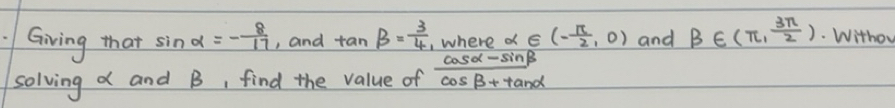 . Giving that sin α = -8/17, and tan β = 3/4, where α ∈ (-π/2, 0) and β ∈ (π, 3π/2). Withou
solving α and β, find the value of (cosα - sinβ)/(cosβ + tanα)